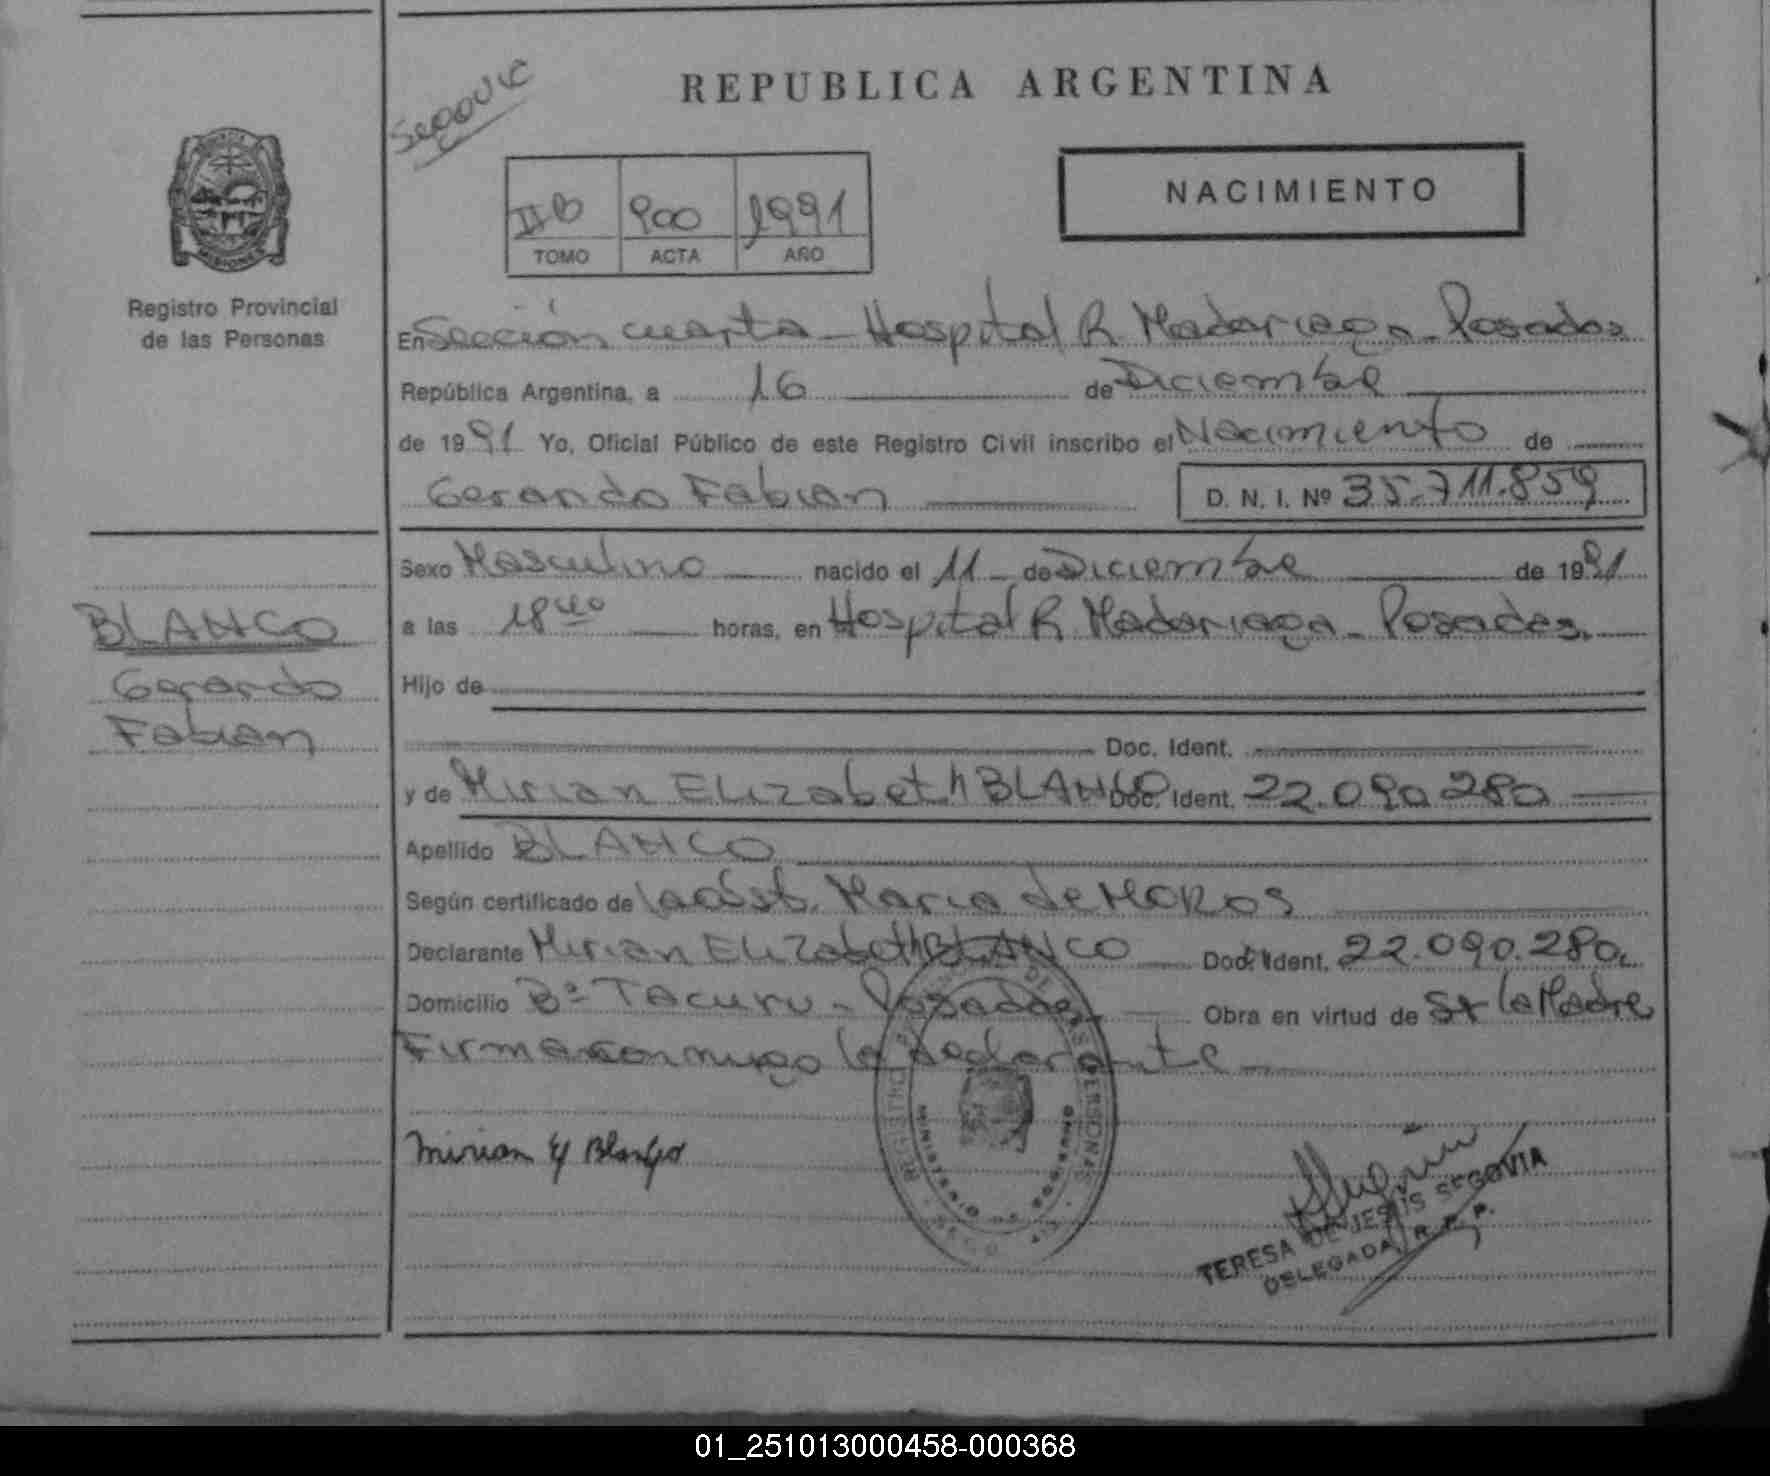 REPUBLICA ARGENTINA
NACIMIENTO
IIB 900 1991
TOMO ACTA AÑO
MISIONES
Registro Provincial
de las Personas
En Sección cuarta - Hospital R. Madariaga - Posadas
República Argentina, a 16 de Diciembre
de 1991 Yo, Oficial Público de este Registro Civil inscribo el Nacimiento de
Gerardo Fabian D. N. I. Nº 35.711.859
Sexo Masculino nacido el 11 de Diciembre de 1991
a las 18 40 horas, en Hospital R. Madariaga - Posadas.
Hijo de
Doc. Ident.
y de Mirian Elizabeth BLANCO Doc. Ident. 22.090.280
Apellido BLANCO
Según certificado de la obst. Maria de MOROS
Declarante Mirian Elizabeth BLANCO Doc. Ident. 22.090.280
Domicilio Bº Tacuru - Posadas Obra en virtud de ser la Madre
Firma conmigo la declarante
BLANCO
Gerardo
Fabian
Mirian E Blanco
REGISTRO DE LAS PERSONAS
MINISTERIO DE GOBIERNO
TERESA DE JESUS SEGOVIA
DELEGADA R. P. P.
01_251013000458-000368